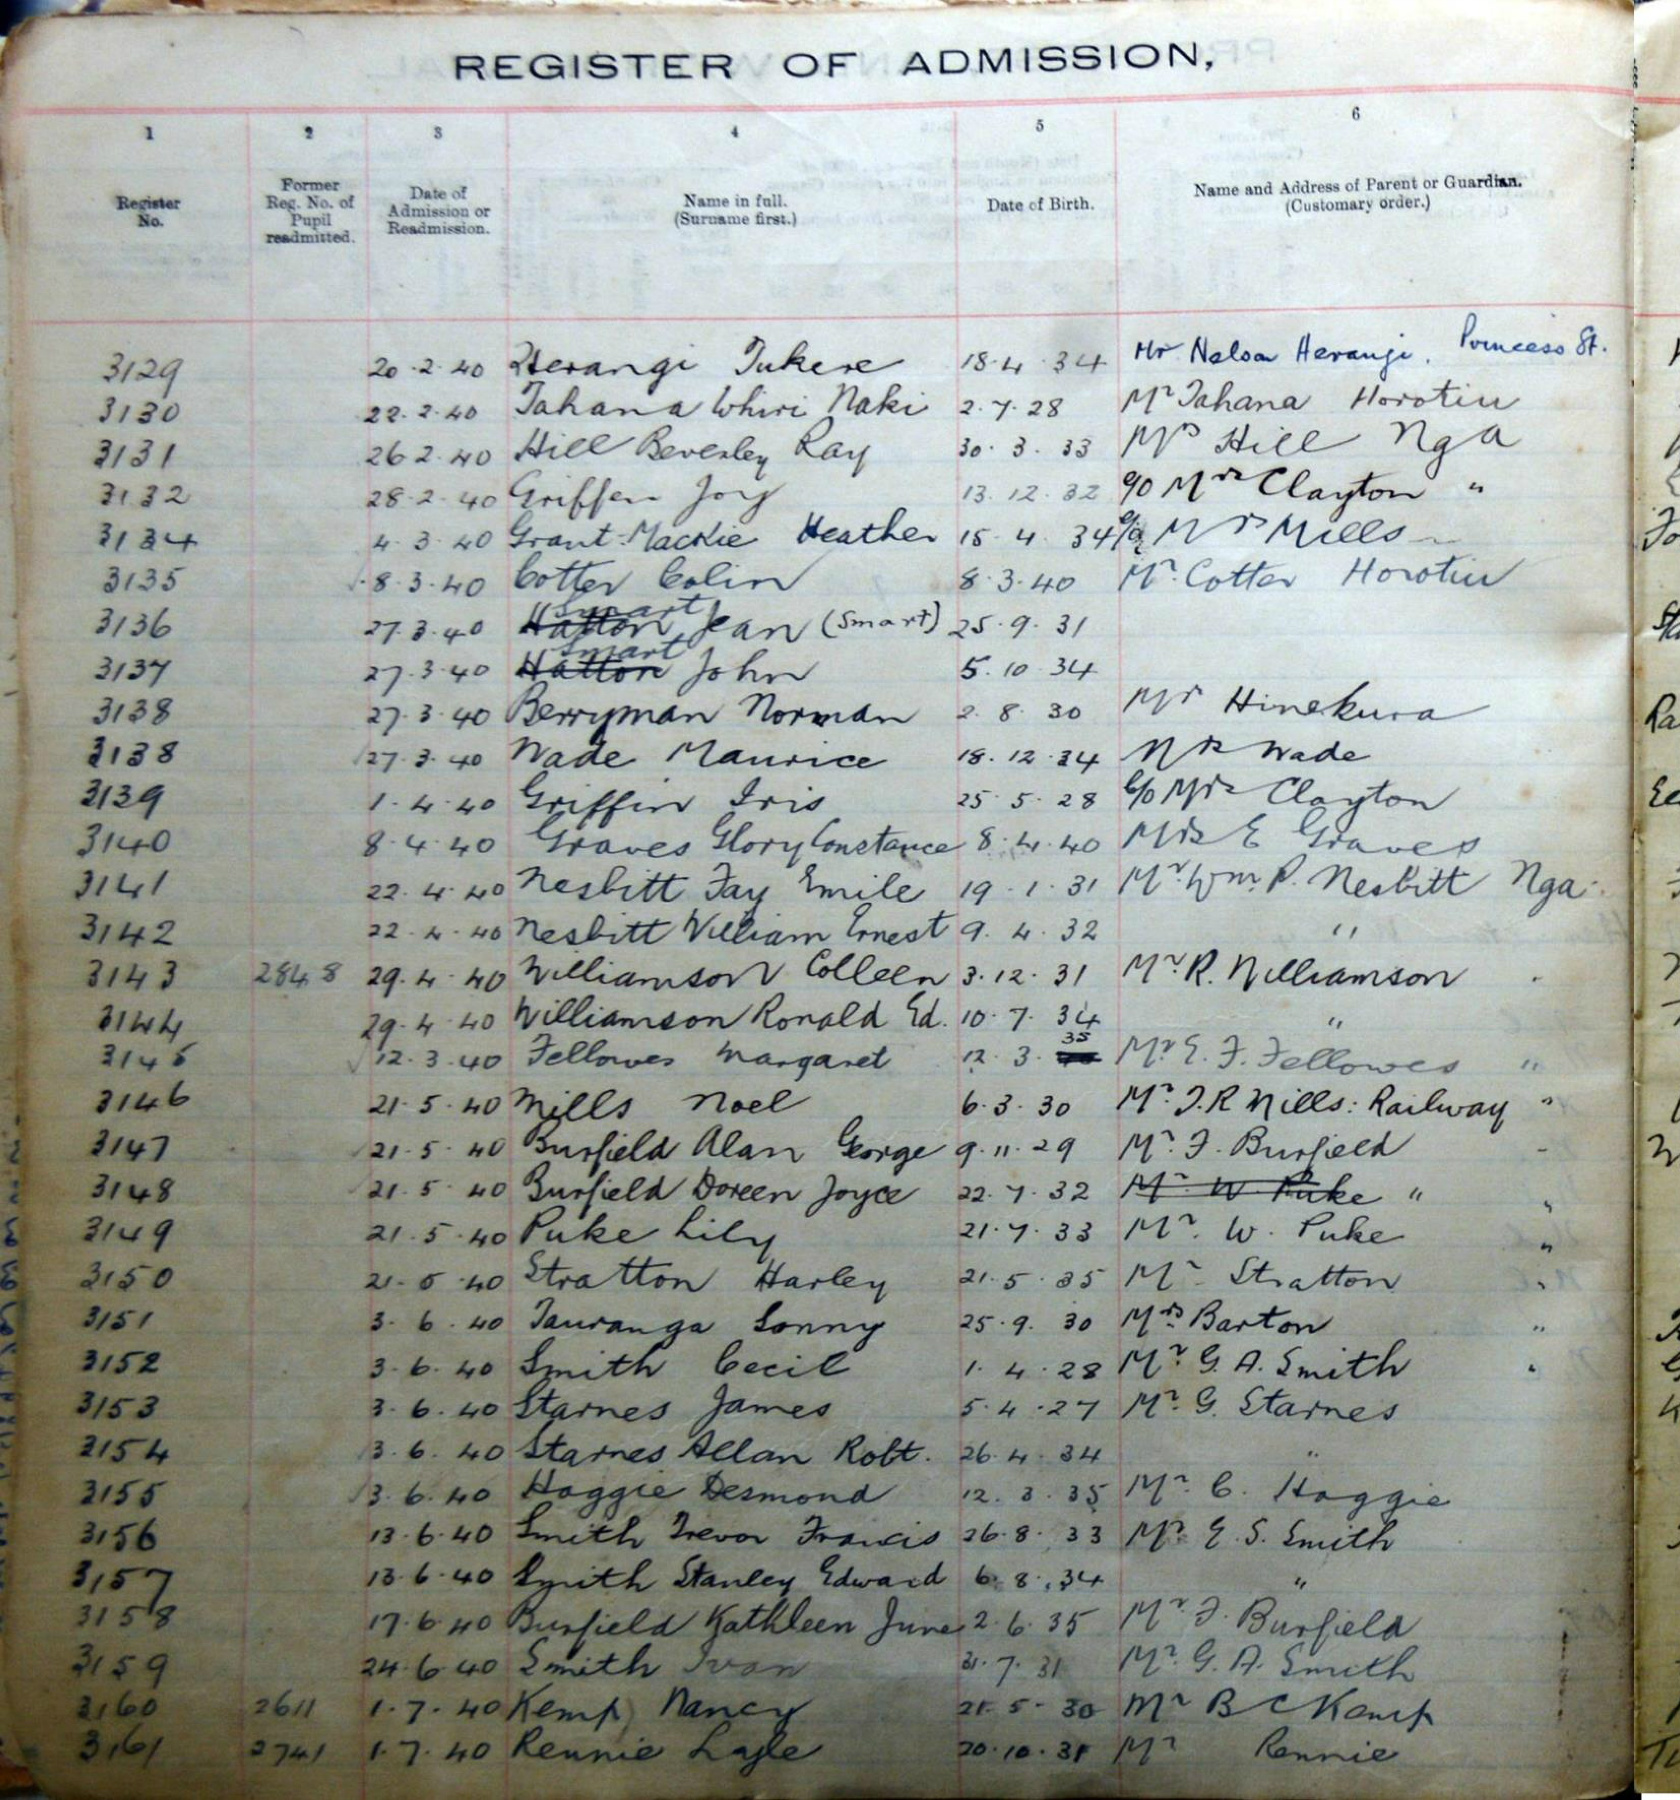 REGISTER OF ADMISSION,
1 2 3 4 5 6
Register No. Former Reg. No. of Pupil readmitted. Date of Admission or Readmission. Name in full. (Surname first.) Date of Birth. Name and Address of Parent or Guardian. (Customary order.)
3129 20.2.40 Herangi Tukere 18.4.34 Mr Nelson Herangi. Princess St.
3130 22.2.40 Tahana Whiri Naki 2.7.28 Mr Tahana Horotiu
3131 26 2.40 Hill Beverley Ray 30.3.33 Mrs Hill Nga
3132 28.2.40 Griffen Joy 13.12.32 c/o Mrs Clayton "
3134 4.3.40 Grant-Mackie Heather 15.4.34 c/o Mrs Mills
3135 8.3.40 Cotter Colin 8.3.40 Mr. Cotter Horotiu
3136 27.3.40 Hatton Smart Jean (Smart) 25.9.31
3137 27.3.40 Hatton Smart John 5.10.34
3138 27.3.40 Berryman Norman 2.8.30 Mr Hinekura
3138 27.3.40 Wade Maurice 18.12.34 Mrs Wade
3139 1.4.40 Griffin Iris 25.5.28 c/o Mrs Clayton
3140 8.4.40 Graves Glory Constance 8.4.40 Mrs E Graves
3141 22.4.40 Nesbitt Fay Emile 19.1.31 Mr. Wm. P. Nesbitt Nga.
3142 22.4.40 Nesbitt William Ernest 9.4.32 "
3143 2848 29.4.40 Williamson Colleen 3.12.31 Mr R. Williamson
3144 29.4.40 Williamson Ronald Ed. 10.7.34 "
3145 12.3.40 Fellowes Margaret 12.3.35 Mr E. F. Fellowes "
3146 21.5.40 Mills Noel 6.3.30 Mr. J.R Mills: Railway "
3147 21.5.40 Burfield Alan George 9.11.29 Mr. F. Burfield
3148 21.5.40 Burfield Doreen Joyce 22.7.32 Mr. W. Puke " "
3149 21.5.40 Puke Lily 21.7.33 Mr. W. Puke "
3150 21.5.40 Stratton Harley 21.5.35 Mr Stratton "
3151 3.6.40 Tauranga Sonny 25.9.30 Mrs Barton "
3152 3.6.40 Smith Cecil 1.4.28 Mr. G. A. Smith "
3153 3.6.40 Starnes James 5.4.27 Mr. G. Starnes
3154 3.6.40 Starnes Allan Robt. 26.4.34 "
3155 3.6.40 Haggie Desmond 12.3.35 Mr. C. Haggie
3156 13.6.40 Smith Trevor Francis 26.8.33 Mr. E. S. Smith
3157 13.6.40 Smith Stanley Edward 6.8.34 "
3158 17.6.40 Burfield Kathleen June 2.6.35 Mr. F. Burfield
3159 24.6.40 Smith Ivan 31.7.31 Mr. G. A. Smith
3160 2611 1.7.40 Kemp Nancy 21.5.30 Mr B C Kemp
3161 2741 1.7.40 Rennie Lagle 20.10.31 Mr Rennie